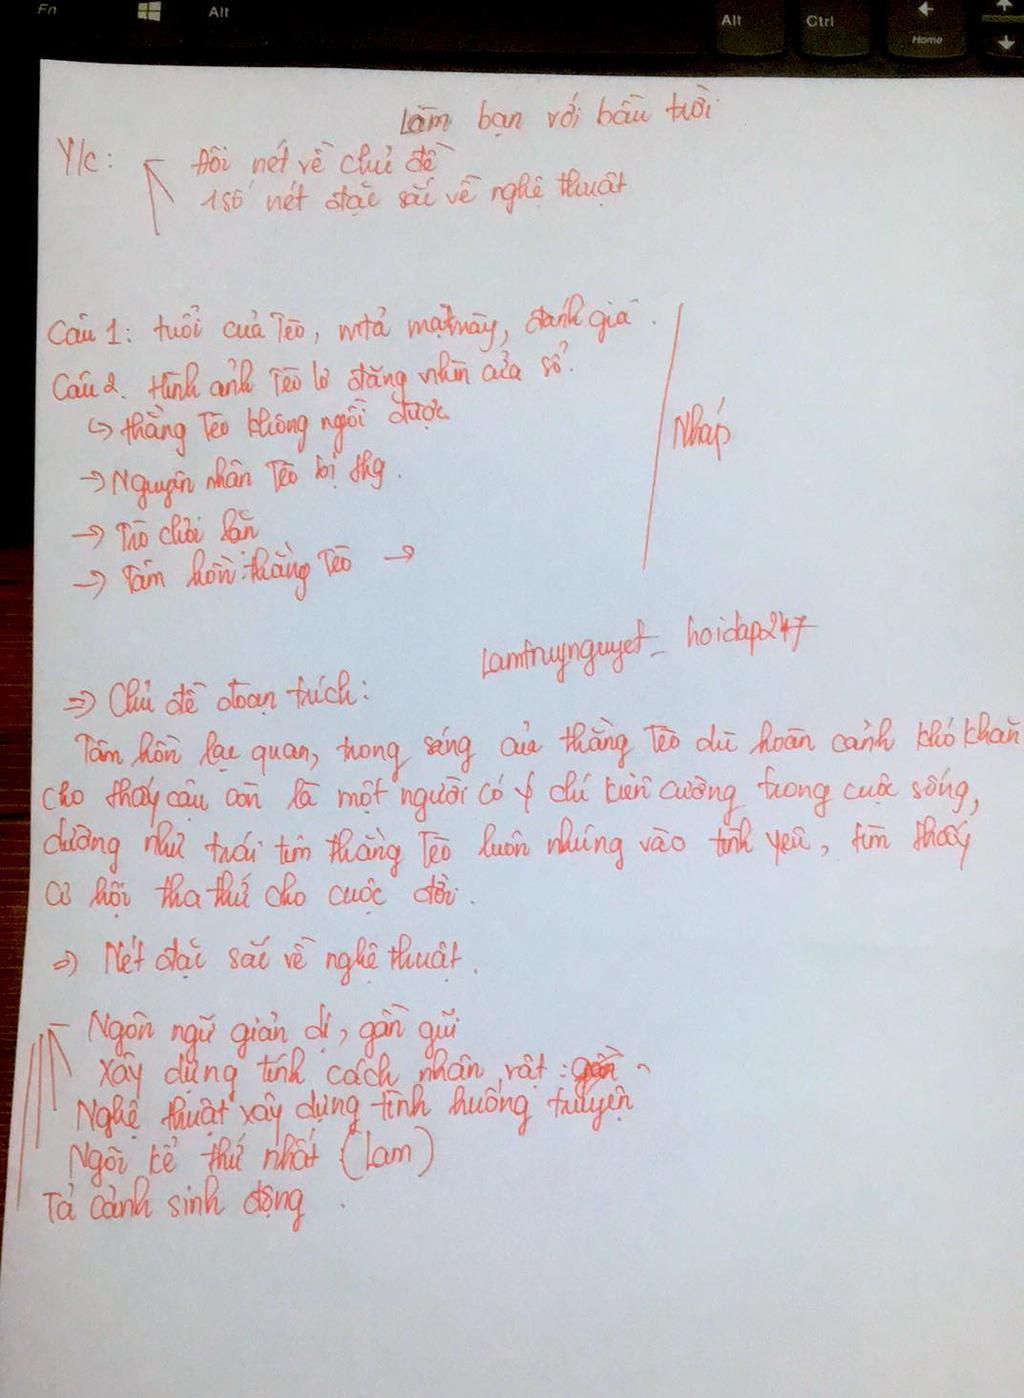 Fn
Alt
Alt
Ctrl
Home
Làm bạn với bầu trời
Y/c:
Đôi nét về chủ đề
1 số nét đặc sắc về nghệ thuật
Câu 1: tuổi của Tèo, mtả mặt mày, đánh giá.
Câu 2. Hình ảnh Tèo lơ đãng nhìn cửa sổ.
↳ thằng Tèo không ngồi được
→ Nguyên nhân Tèo bị thg.
→ Trò chơi lăn
→ Tâm hồn: thằng Tèo →
Nháp
Lamtruynguyet_ hoidap247
=> Chủ đề đoạn trích:
Tâm hồn lạc quan, trong sáng của thằng Tèo dù hoàn cảnh khó khăn
cho thấy cậu còn là một người có ý chí kiên cường trong cuộc sống,
dường như trái tim thằng Tèo luôn nhúng vào tình yêu, tìm thấy
cơ hội tha thứ cho cuộc đời.
=> Nét đặc sắc về nghệ thuật.
Ngôn ngữ giản dị, gần gũi
Xây dựng tính cách nhân vật:
Nghệ thuật xây dựng tình huống truyện
Ngôi kể thứ nhất (Lam)
Tả cảnh sinh động.